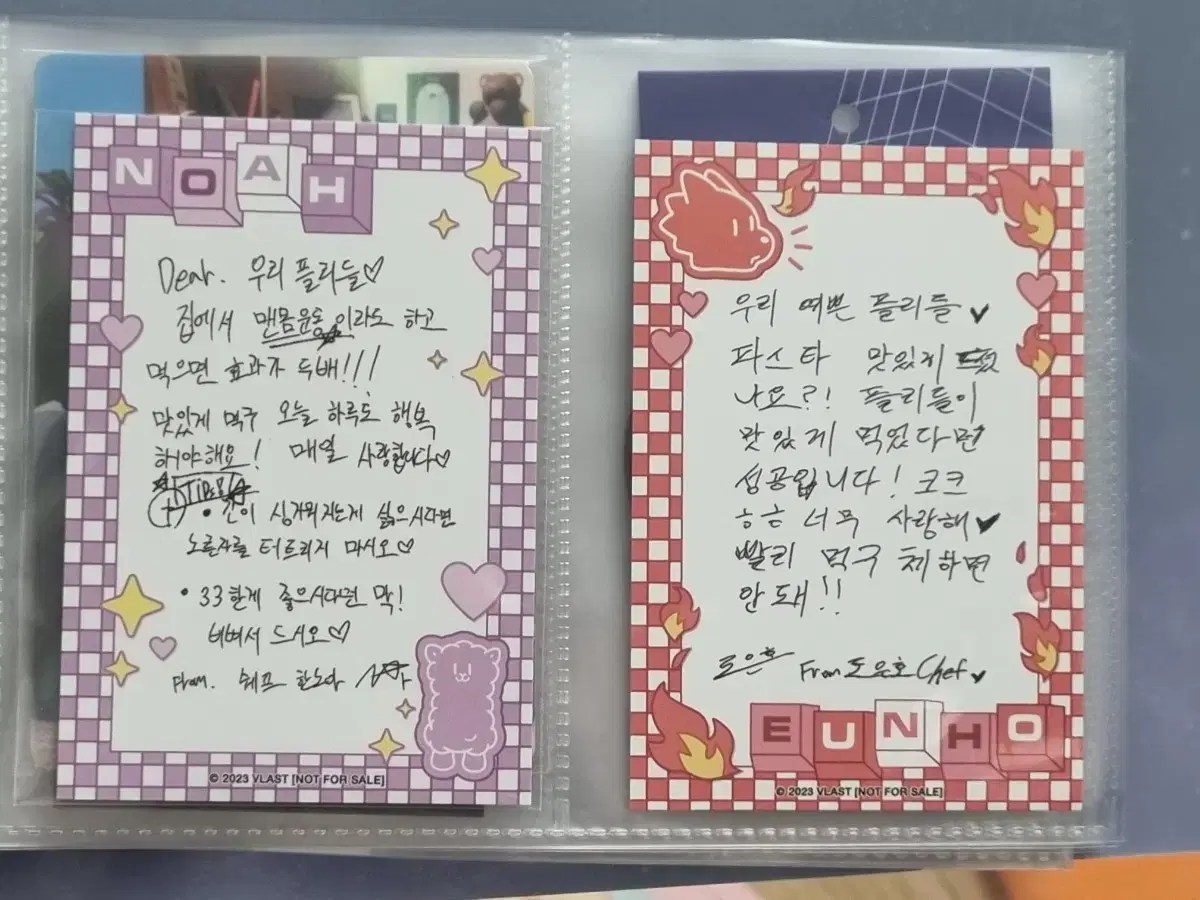 NOAH
Dear. 우리 플리들♡
집에서 맨몸운동이라도 하고
먹으면 효과가 두배!!!
맛있게 먹구 오늘 하루도 행복
해야해요! 매일 사랑합니다♡
TIP
• 간이 싱거워지는게 싫으시다면
노른자를 터트리지 마시오♡
• 33한게 좋으시다면 막!
비벼서 드시오♡
From. 쉐프 한노아
© 2023 VLAST [NOT FOR SALE]
우리 예쁜 플리들
파스타 맛있게
나요?! 플리들이
맛있게 먹었다면
성공입니다! 코크
ㅎㅎ 너무 사랑해
빨리 먹구 체하면
안돼!!
도은호 From 도은호 Chef
EUNHO
© 2023 VLAST [NOT FOR SALE]